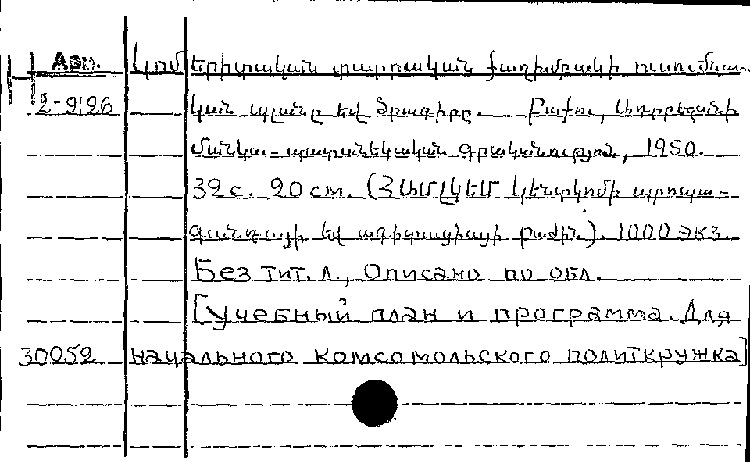 Арм. Կոմերիտական տարրական քաղխմբակի ուսումնա-
2-9126 կան պլանը եվ ծրագիրը. Բաքու, Ադրբեջանի
մանկա-պատանեկական գրականություն, 1950.
32 с. 20 см. (ՀԼԿԵՄ կենտկոմի պրոպա-
գանդայի եվ ագիտացիայի բաժին). 1000 экз.
Без тит. л., Описано по обл.
[Учебный план и программа. Для
30052 начального комсомольского политкружка]